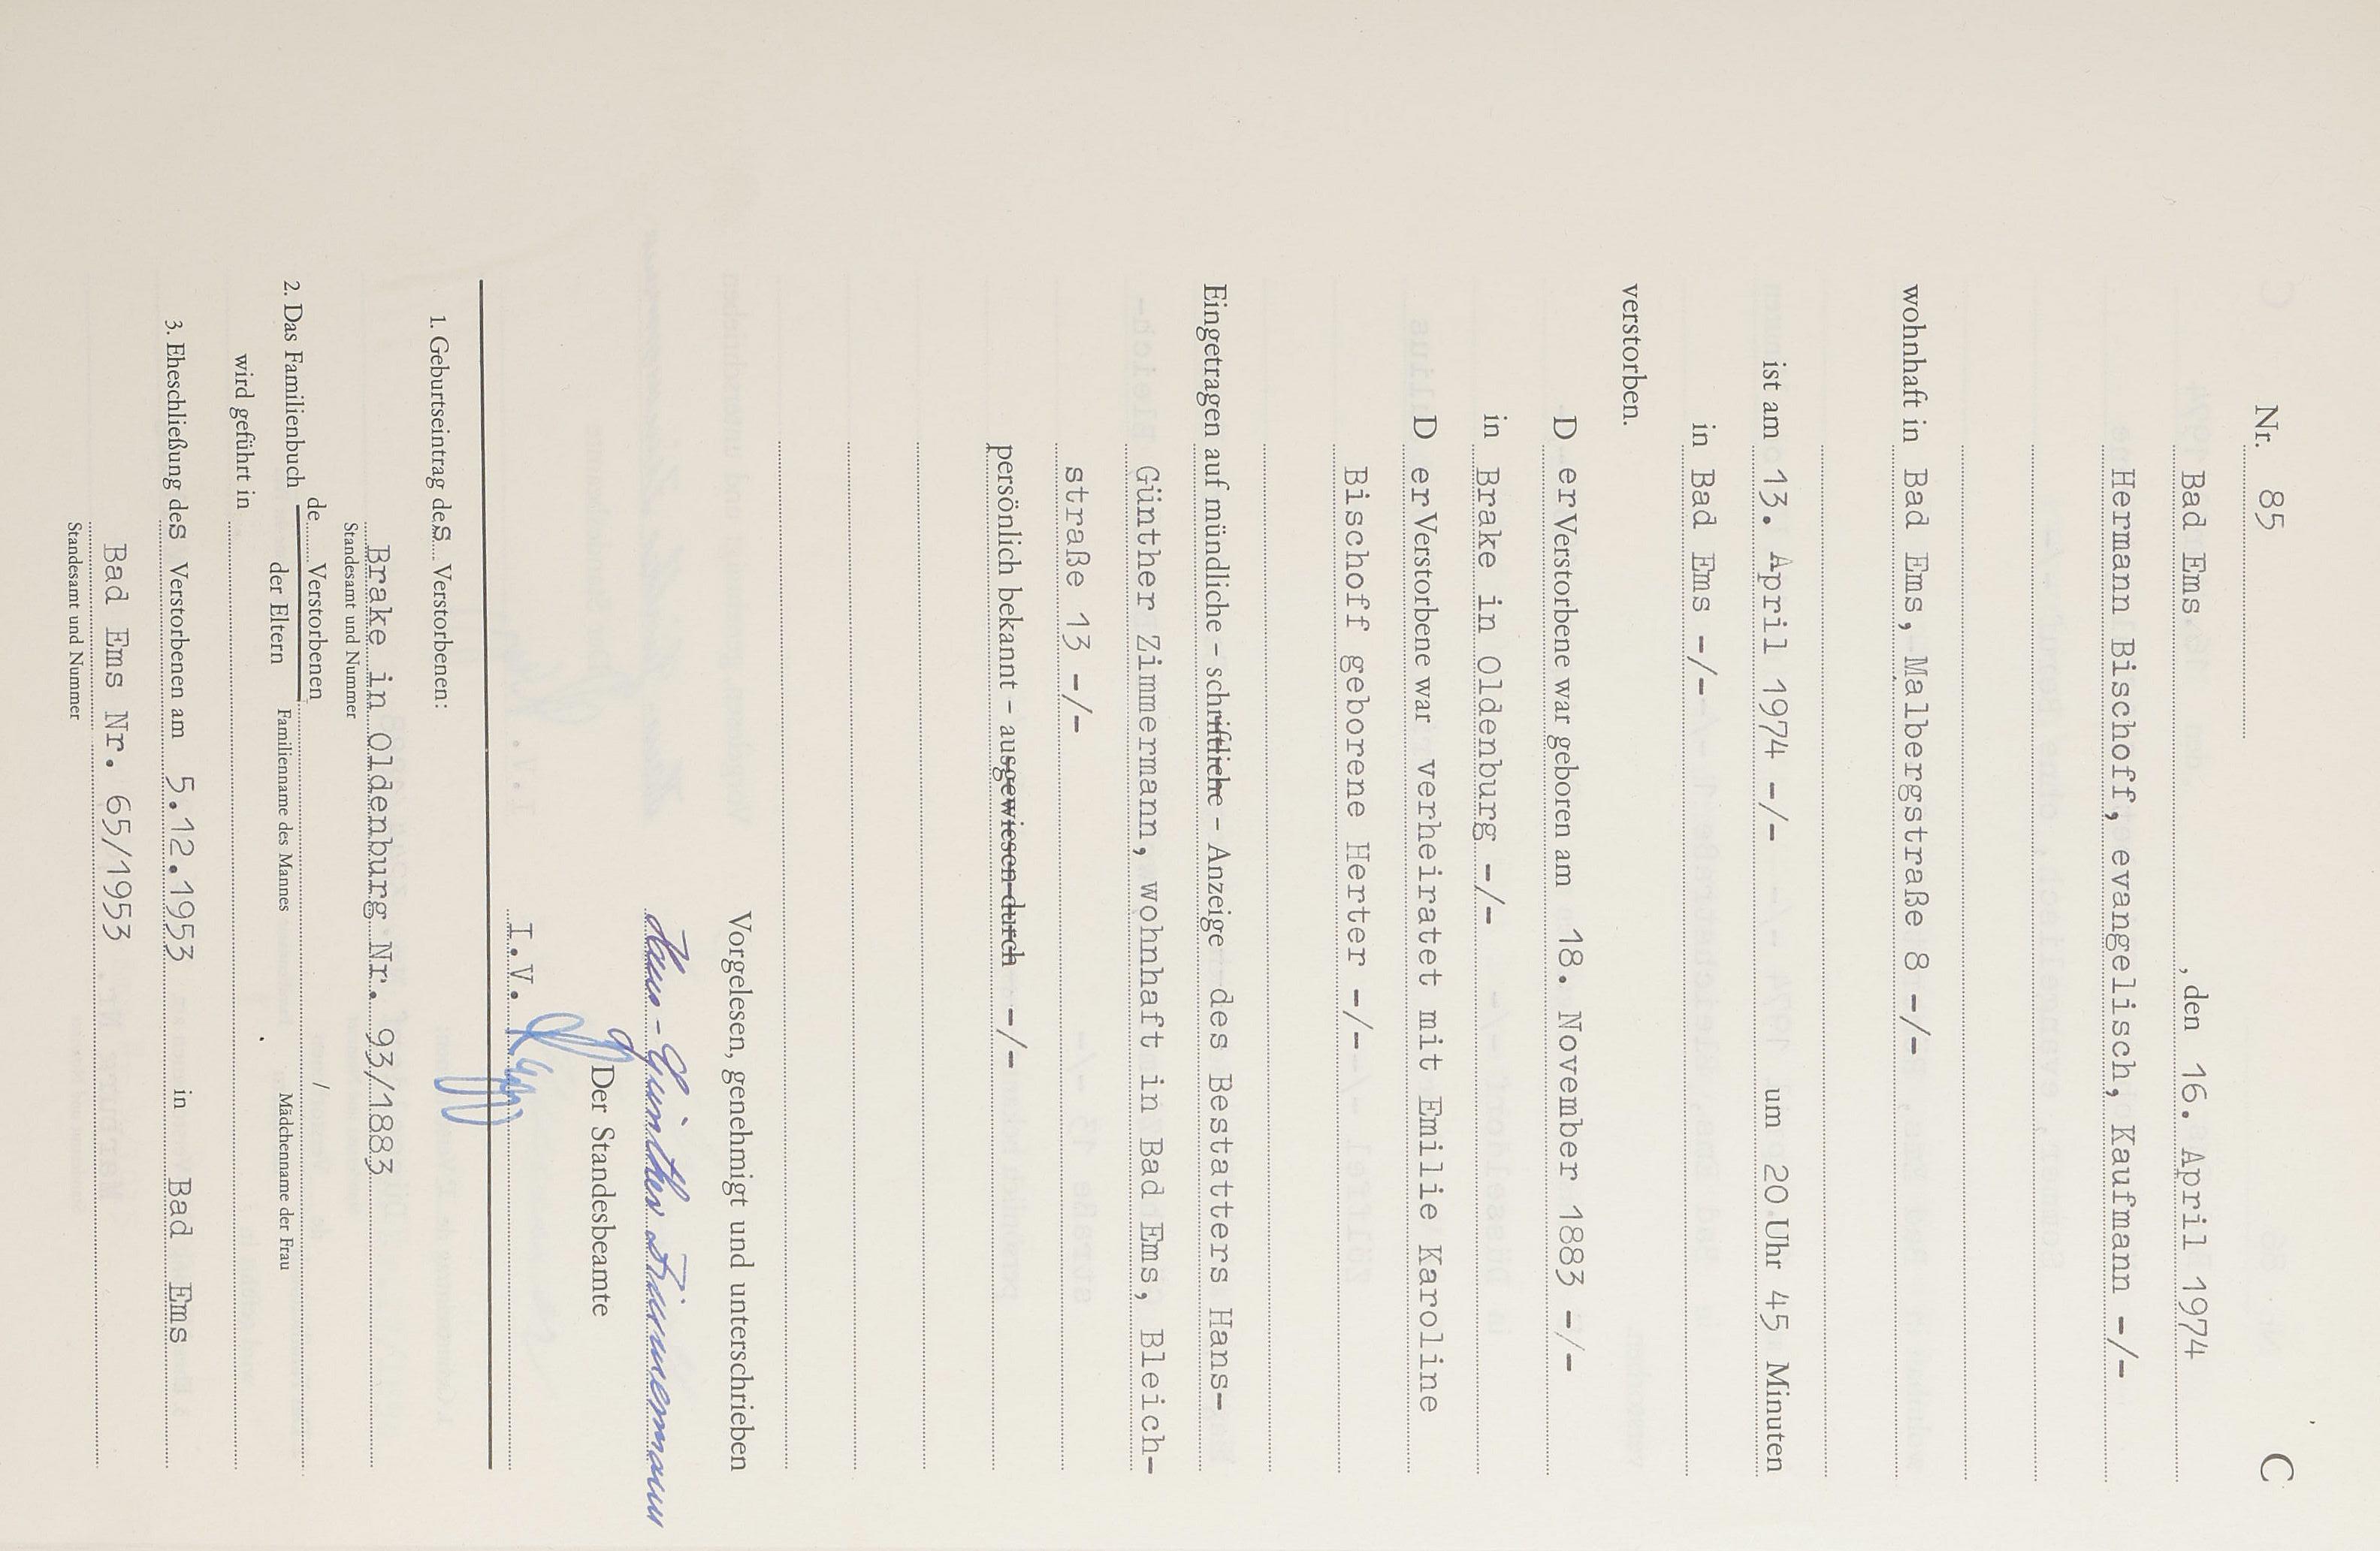 C
Nr. 85
Bad Ems, den 16. April 1974
Hermann Bischoff, evangelisch, Kaufmann -/-
wohnhaft in Bad Ems, Malbergstraße 8 -/-
ist am 13. April 1974 -/- um 20 Uhr 45 Minuten
in Bad Ems -/-
verstorben.
D er Verstorbene war geboren am 18. November 1883 -/-
in Brake in Oldenburg -/-
D er Verstorbene war verheiratet mit Emilie Karoline
Bischoff geborene Herter -/-
Eingetragen auf mündliche – schriftliche – Anzeige des Bestatters Hans-
Günther Zimmermann, wohnhaft in Bad Ems, Bleich-
straße 13 -/-
persönlich bekannt – ausgewiesen durch -/-
Vorgelesen, genehmigt und unterschrieben
Hans-Günther Zimmermann
Der Standesbeamte
I.V.
1. Geburtseintrag des Verstorbenen:
Brake in Oldenburg Nr. 93/1883
Standesamt und Nummer
de Verstorbenen /
2. Das Familienbuch
der Eltern Familienname des Mannes Mädchenname der Frau
wird geführt in
3. Eheschließung des Verstorbenen am 5.12.1953 in Bad Ems
Bad Ems Nr. 65/1953
Standesamt und Nummer